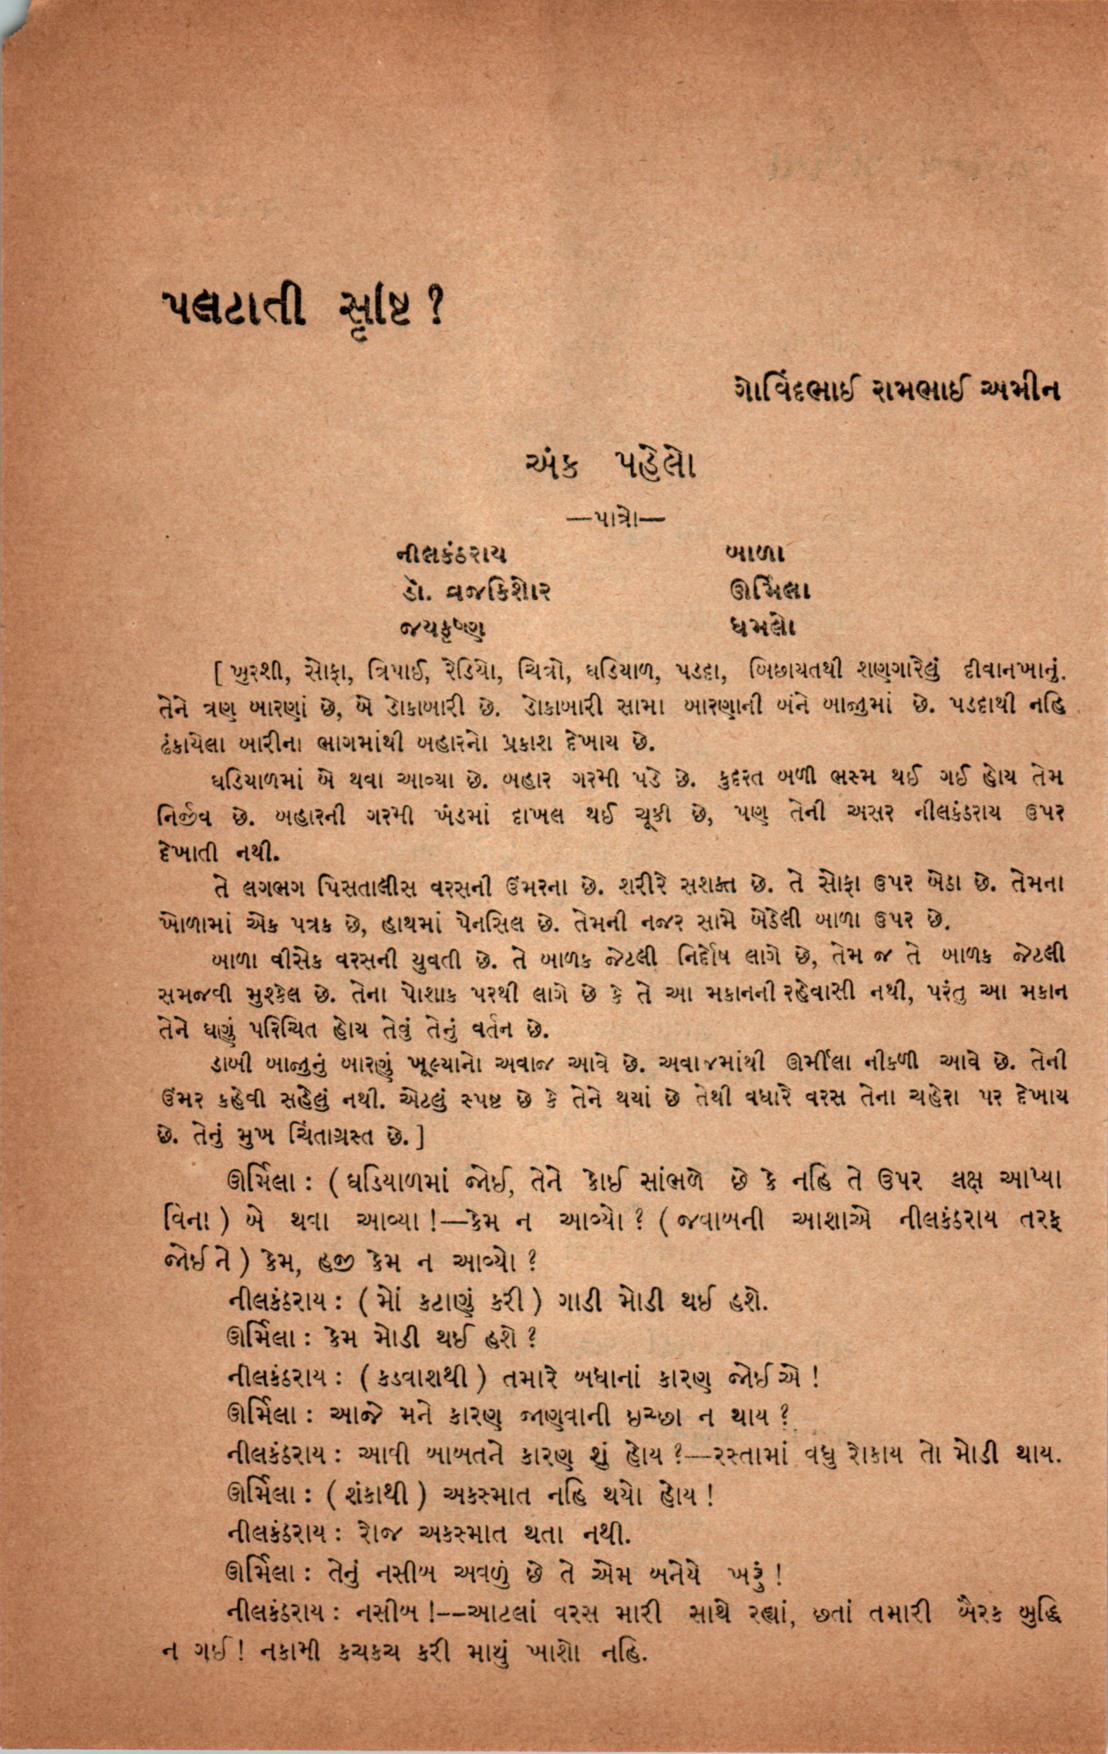 પલટાતી સૃષ્ટિ ?
ગોવિંદભાઈ રામભાઈ અમીન
અંક પહેલો
—પાત્રો—
નીલકંઠરાય બાળા
ડૉ. વ્રજકિશોર ઊર્મિલા
જયકૃષ્ણ ધમલો
[ ખુરશી, સોફા, ત્રિપાઈ, રેડિયો, ચિત્રો, ઘડિયાળ, પડદા, બિછાયતથી શણગારેલું દીવાનખાનું.
તેને ત્રણ બારણાં છે, બે ડોકાબારી છે. ડોકાબારી સામા બારણાની બંને બાજુમાં છે. પડદાથી નહિ
ઢંકાયેલા બારીના ભાગમાંથી બહારનો પ્રકાશ દેખાય છે.
ઘડિયાળમાં બે થવા આવ્યા છે. બહાર ગરમી પડે છે. કુદરત બળી ભસ્મ થઈ ગઈ હોય તેમ
નિર્જીવ છે. બહારની ગરમી ખંડમાં દાખલ થઈ ચૂકી છે, પણ તેની અસર નીલકંઠરાય ઉપર
દેખાતી નથી.
તે લગભગ પિસતાલીસ વરસની ઉંમરના છે. શરીરે સશક્ત છે. તે સોફા ઉપર બેઠા છે. તેમના
ખોળામાં એક પત્રક છે, હાથમાં પેનસિલ છે. તેમની નજર સામે બેઠેલી બાળા ઉપર છે.
બાળા વીસેક વરસની યુવતી છે. તે બાળક જેટલી નિર્દોષ લાગે છે, તેમ જ તે બાળક જેટલી
સમજવી મુશ્કેલ છે. તેના પોશાક પરથી લાગે છે કે તે આ મકાનની રહેવાસી નથી, પરંતુ આ મકાન
તેને ઘણું પરિચિત હોય તેવું તેનું વર્તન છે.
ડાબી બાજુનું બારણું ખૂલ્યાનો અવાજ આવે છે. અવાજમાંથી ઊર્મીલા નીકળી આવે છે. તેની
ઉંમર કહેવી સહેલું નથી. એટલું સ્પષ્ટ છે કે તેને થયાં છે તેથી વધારે વરસ તેના ચહેરા પર દેખાય
છે. તેનું મુખ ચિંતાગ્રસ્ત છે. ]
ઊર્મિલા : ( ઘડિયાળમાં જોઈ, તેને કોઈ સાંભળે છે કે નહિ તે ઉપર લક્ષ આપ્યા
વિના ) બે થવા આવ્યા !—કેમ ન આવ્યો ? ( જવાબની આશાએ નીલકંઠરાય તરફ
જોઈને ) કેમ, હજી કેમ ન આવ્યો ?
નીલકંઠરાય : ( મોં કટાણું કરી ) ગાડી મોડી થઈ હશે.
ઊર્મિલા : કેમ મોડી થઈ હશે ?
નીલકંઠરાય : ( કડવાશથી ) તમારે બધાનાં કારણ જોઈએ !
ઊર્મિલા : આજે મને કારણ જાણવાની ઇચ્છા ન થાય ?
નીલકંઠરાય : આવી બાબતને કારણ શું હોય ?—રસ્તામાં વધુ રોકાય તો મોડી થાય.
ઊર્મિલા : ( શંકાથી ) અકસ્માત નહિ થયો હોય !
નીલકંઠરાય : રોજ અકસ્માત થતા નથી.
ઊર્મિલા : તેનું નસીબ અવળું છે તે એમ બનેયે ખરું !
નીલકંઠરાય : નસીબ !--આટલાં વરસ મારી સાથે રહ્યાં, છતાં તમારી બૈરક બુદ્ધિ
ન ગઈ ! નકામી કચકચ કરી માથું ખાશો નહિ.